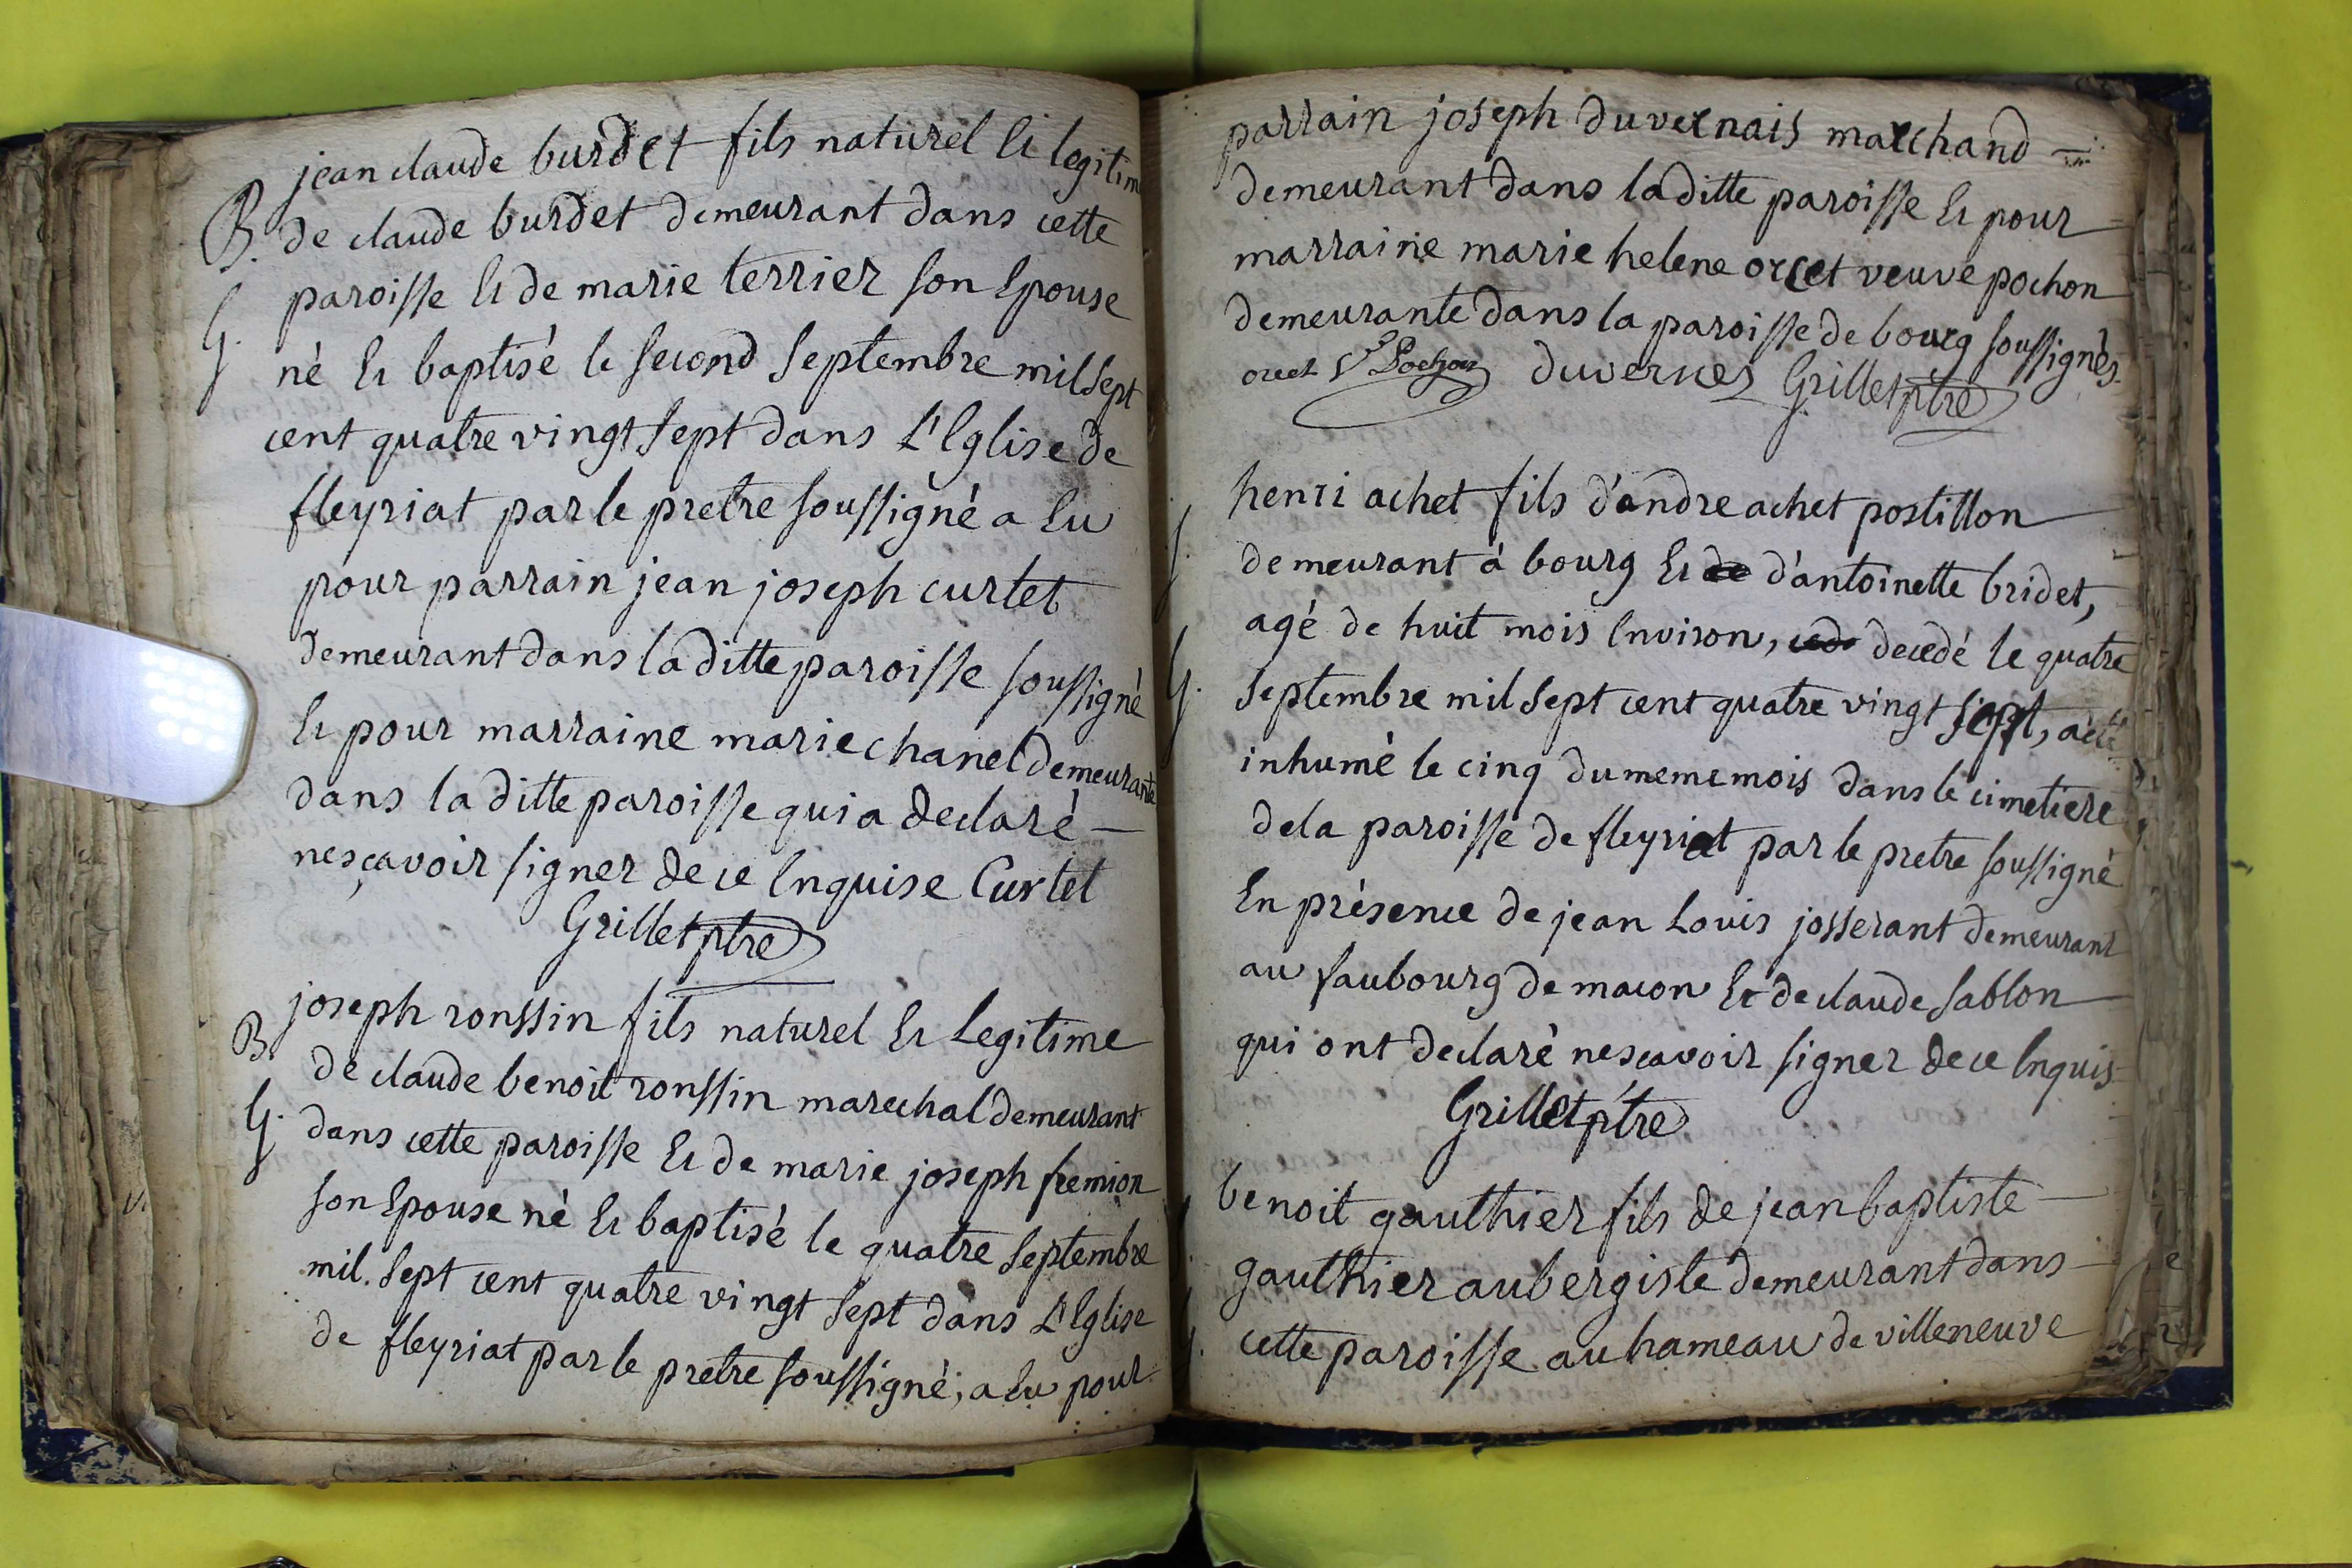 jean claude burdet fils naturel Et legitim
B. de claude burdet demeurant dans cette
paroisse Et de marie terrier son Epouse
G. né Et baptisé le second septembre mil sept
cent quatre vingt sept dans L'Eglise de
fleyriat par le pretre soussigné a Eu
pour parrain jean joseph curtet
demeurant dans la ditte paroisse soussigné
Et pour marraine marie chanel demeurante
dans la ditte paroisse qui a declaré —
nesçavoir signer de ce Enquise Curtet
Grillet ptre
joseph ronssin fils naturel Et Legitime
B. de claude benoit ronssin marechal demeurant
G. dans cette paroisse Et de marie joseph fremion
son Epouse né Et baptisé le quatre septembre
mil. sept cent quatre vingt sept dans L'Eglise
de fleyriat par le pretre soussigné, a Eu pour
parrain joseph duvernais marchand —
demeurant dans la ditte paroisse Et pour
marraine marie helene orcet veuve pochon
demeurante dans la paroisse de bourg soussignés.
orcet Ve Pochon duvernes Grillet ptre
henri achet fils d'andre achet postillon
demeurant à bourg Et de d'antoinette bridet,
agé de huit mois Environ, decedé le quatre
G. septembre mil sept cent quatre vingt sept, a eté
inhumé le cinq du meme mois dans le cimetiere
de la paroisse de fleyriat par le pretre soussigné
En présence de jean Louis josserant demeurant
au faubourg de macon Et de claude sablon
qui ont declaré nescavoir signer de ce Enquis
Grillet ptre
benoit gauthier fils de jean baptiste —
gauthier aubergiste demeurant dans
cette paroisse au hameau de villeneuve